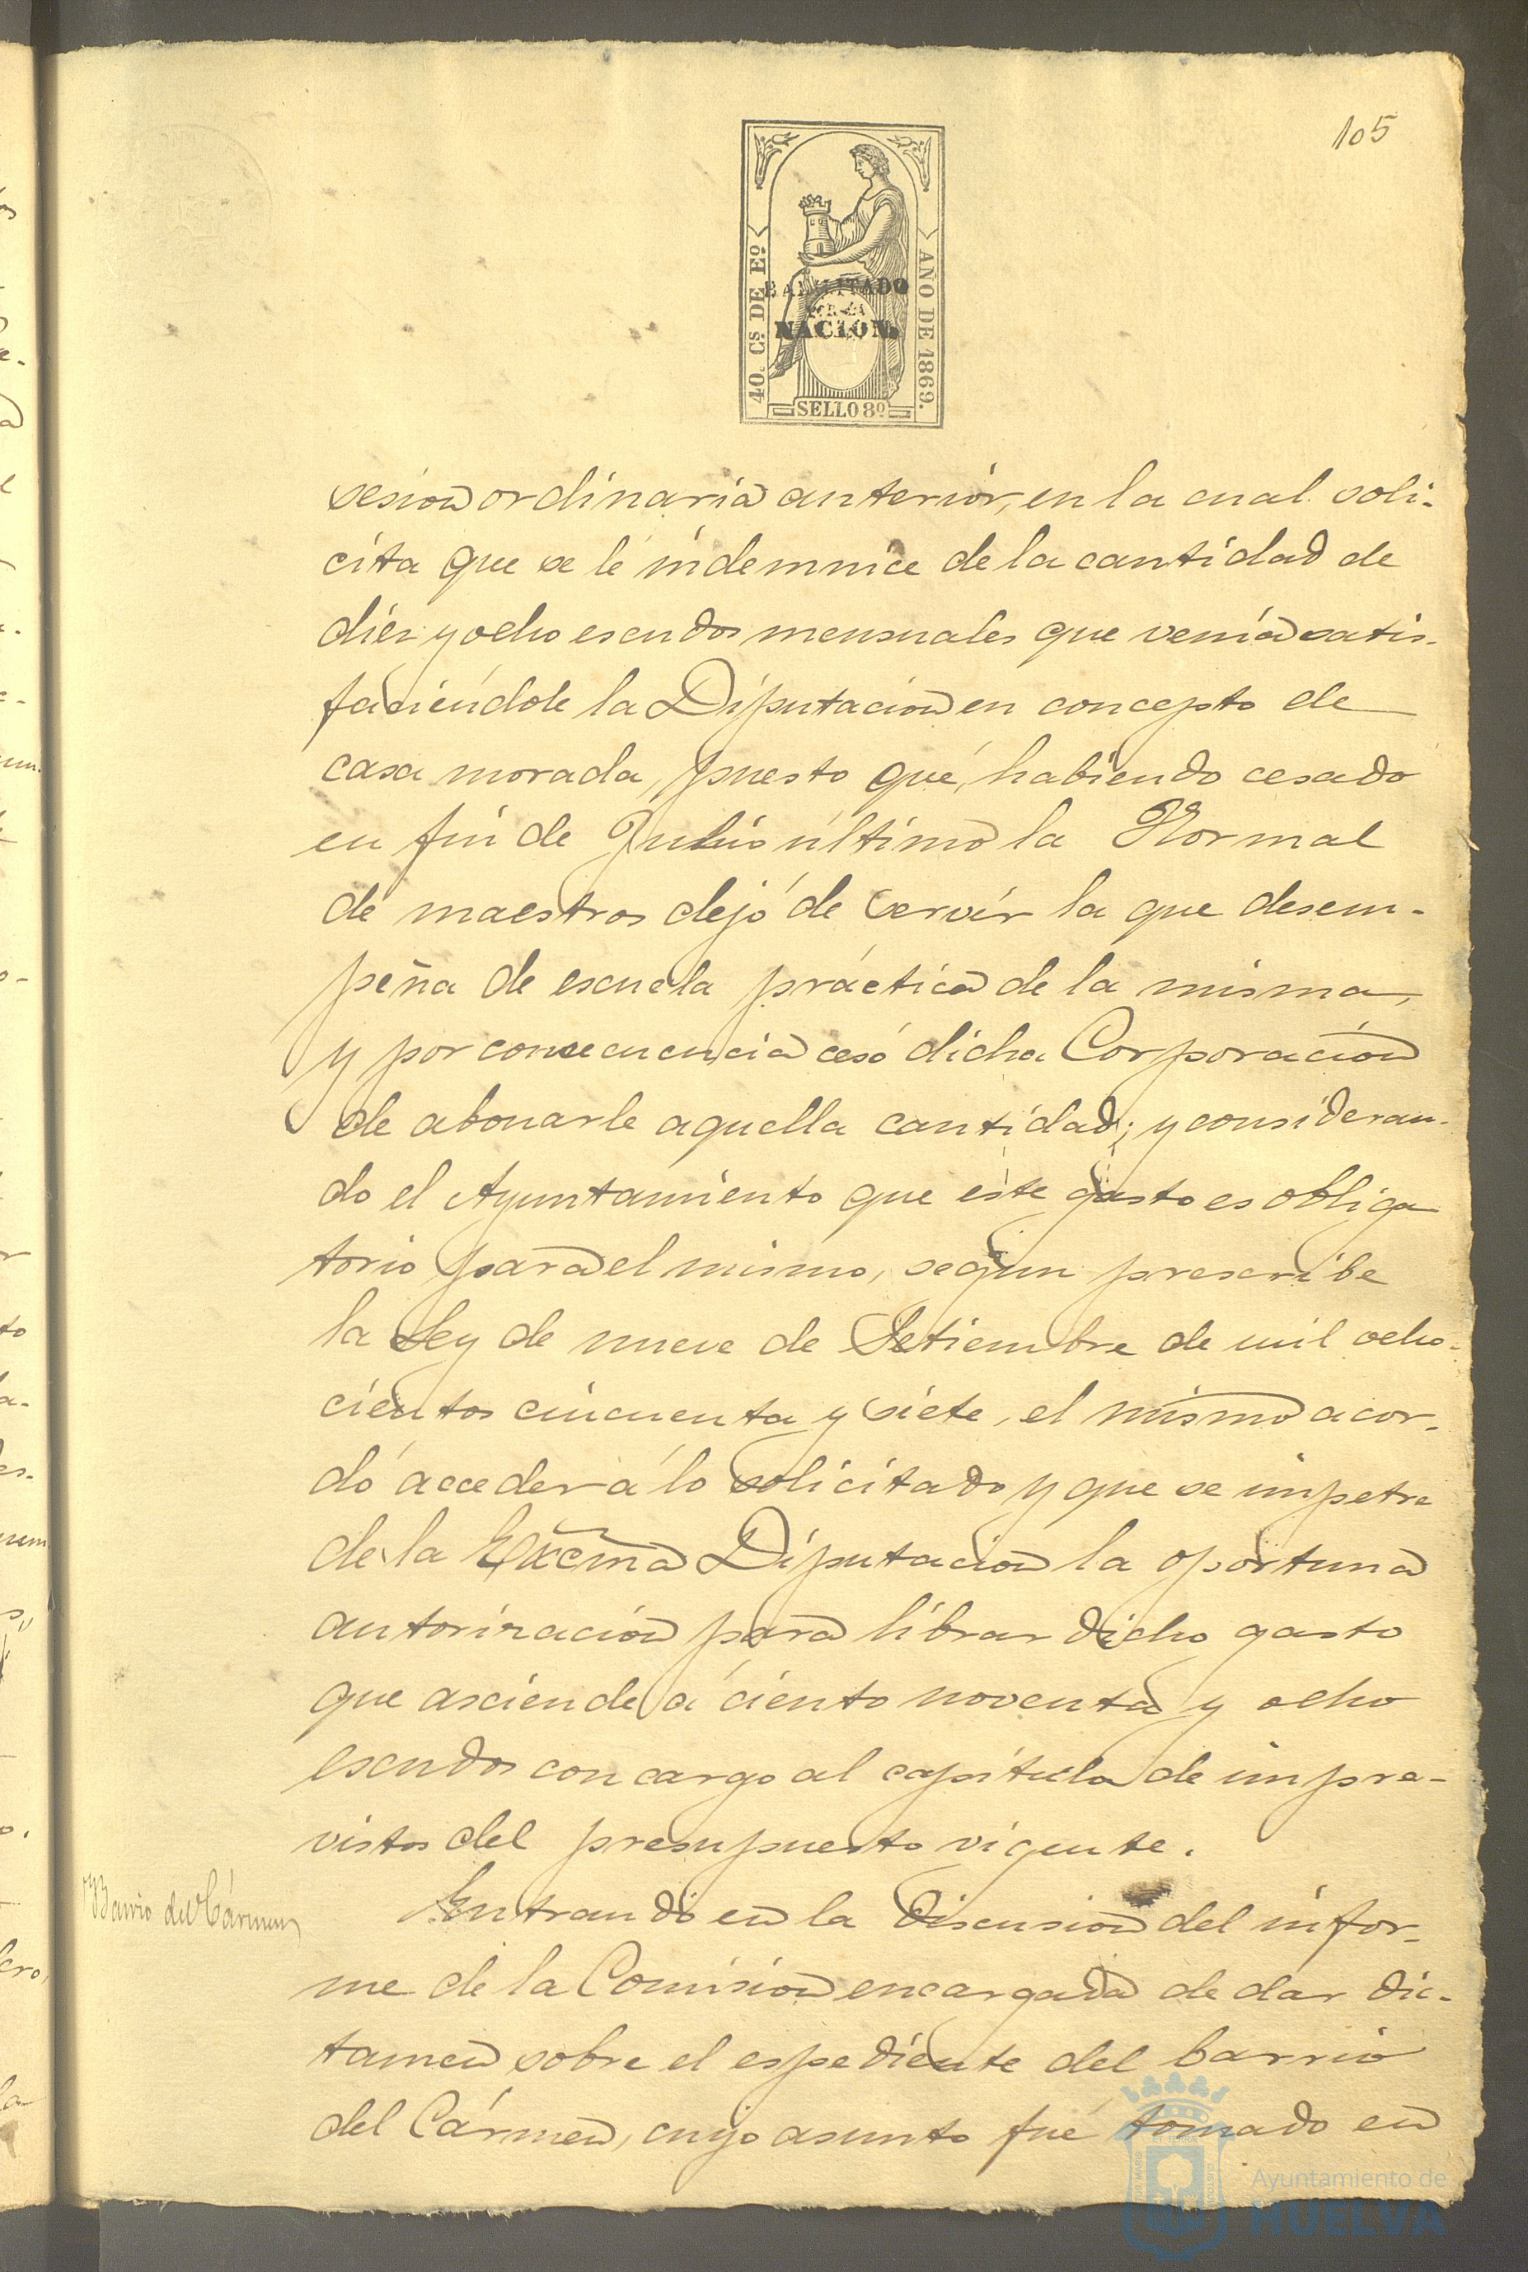 105
40. Cs. DE Eº.
AÑO DE 1869.
HABILITADO
POR LA
NACION.
SELLO 8º
sesion ordinaria anterior, en la cual soli-
cita que se le indemnice de la cantidad de
diez y ocho escudos mensuales que venia satis-
faciéndole la Diputacion en concepto de
casa morada, puesto que, habiendo cesado
en fin de Julio último la Normal
de maestros dejó de servir la que desem-
peña de escuela práctica de la misma,
y por consecuencia cesó dicha Corporacion
de abonarle aquella cantidad; y consideran-
do el Ayuntamiento que este gasto es obliga
torio para el mismo, segun prescribe
la Ley de nueve de Setiembre de mil ocho-
cientos cincuenta y siete, el mismo acor-
dó acceder á lo solicitado y que se impetre
de la Excma Diputacion la oportuna
autorizacion para librar dicho gasto
que asciende á ciento noventa y ocho
escudos con cargo al capítulo de impre-
vistos del presupuesto vigente.
Barrio del Cármen
Entrando en la discusion del infor-
me de la Comision encargada de dar dic-
tamen sobre el espediente del barrio
del Cármen, cuyo asunto fué tomado en
Ayuntamiento de
HUELVA